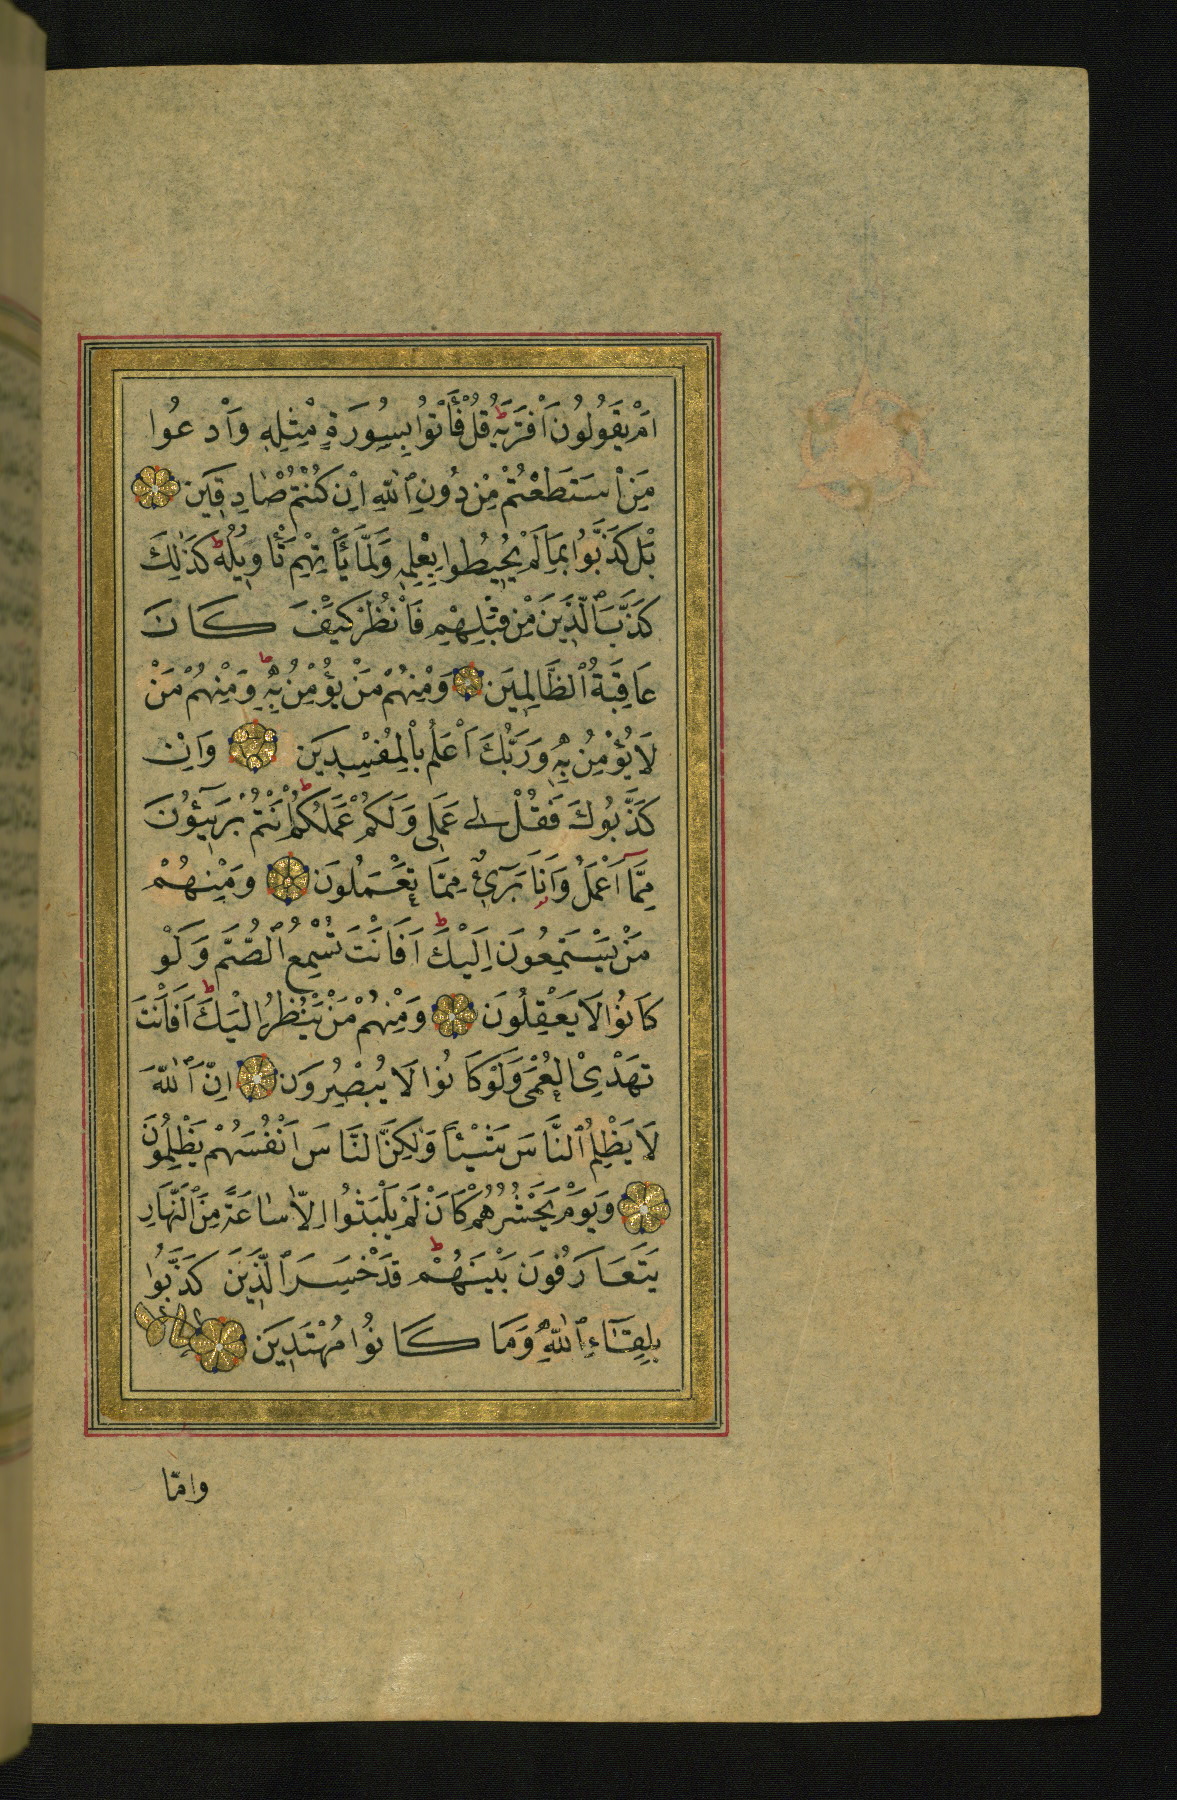 اَمْ يَقُولُونَ اَفْتَرٰيهُ قُلْ فَأْتُوا بِسُورَةٍ مِثْلِهِ وَاَدْعُوا
مَنِ اسْتَطَعْتُمْ مِنْ دُونِ ٱللّٰهِ اِنْ كُنْتُمْ صَادِقِينَ
بَلْ كَذَّبُوا بِمَا لَمْ يُحِيطُوا بِعِلْمِهِ وَلَمَّا يَأْتِهِمْ تَأْوِيلُهُ كَذٰلِكَ
كَذَّبَ ٱلَّذِينَ مِنْ قَبْلِهِمْ فَانْظُرْ كَيْفَ كَانَ
عَاقِبَةُ ٱلظَّالِمِينَ وَمِنْهُمْ مَنْ يُؤْمِنُ بِهِ وَمِنْهُمْ مَنْ
لَا يُؤْمِنُ بِهِ وَرَبُّكَ اَعْلَمُ بِالْمُفْسِدِينَ وَاِنْ
كَذَّبُوكَ فَقُلْ لِي عَمَلِي وَلَكُمْ عَمَلُكُمْ اَنْتُمْ بَرِٓيؤُنَ
مِمَّٓا اَعْمَلُ وَاَنَا بَرِٓيئٌ مِمَّا تَعْمَلُونَ وَمِنْهُمْ
مَنْ يَسْتَمِعُونَ اِلَيْكَ اَفَاَنْتَ تُسْمِعُ ٱلصُّمَّ وَلَوْ
كَانُوا لَا يَعْقِلُونَ وَمِنْهُمْ مَنْ يَنْظُرُ اِلَيْكَ اَفَاَنْتَ
تَهْدِي الْعُمْيَ وَلَوْ كَانُوا لَا يُبْصِرُونَ اِنَّ ٱللّٰهَ
لَا يَظْلِمُ ٱلنَّاسَ شَيْئًا وَلٰكِنَّ النَّاسَ اَنْفُسَهُمْ يَظْلِمُونَ
وَيَوْمَ يَحْشُرُهُمْ كَاَنْ لَمْ يَلْبَثُوا اِلَّا سَاعَةً مِنَ ٱلنَّهَارِ
يَتَعَارَفُونَ بَيْنَهُمْ قَدْ خَسِرَ ٱلَّذِينَ كَذَّبُوا
بِلِقَٓاءِ ٱللّٰهِ وَمَا كَانُوا مُهْتَدِينَ
وامّا